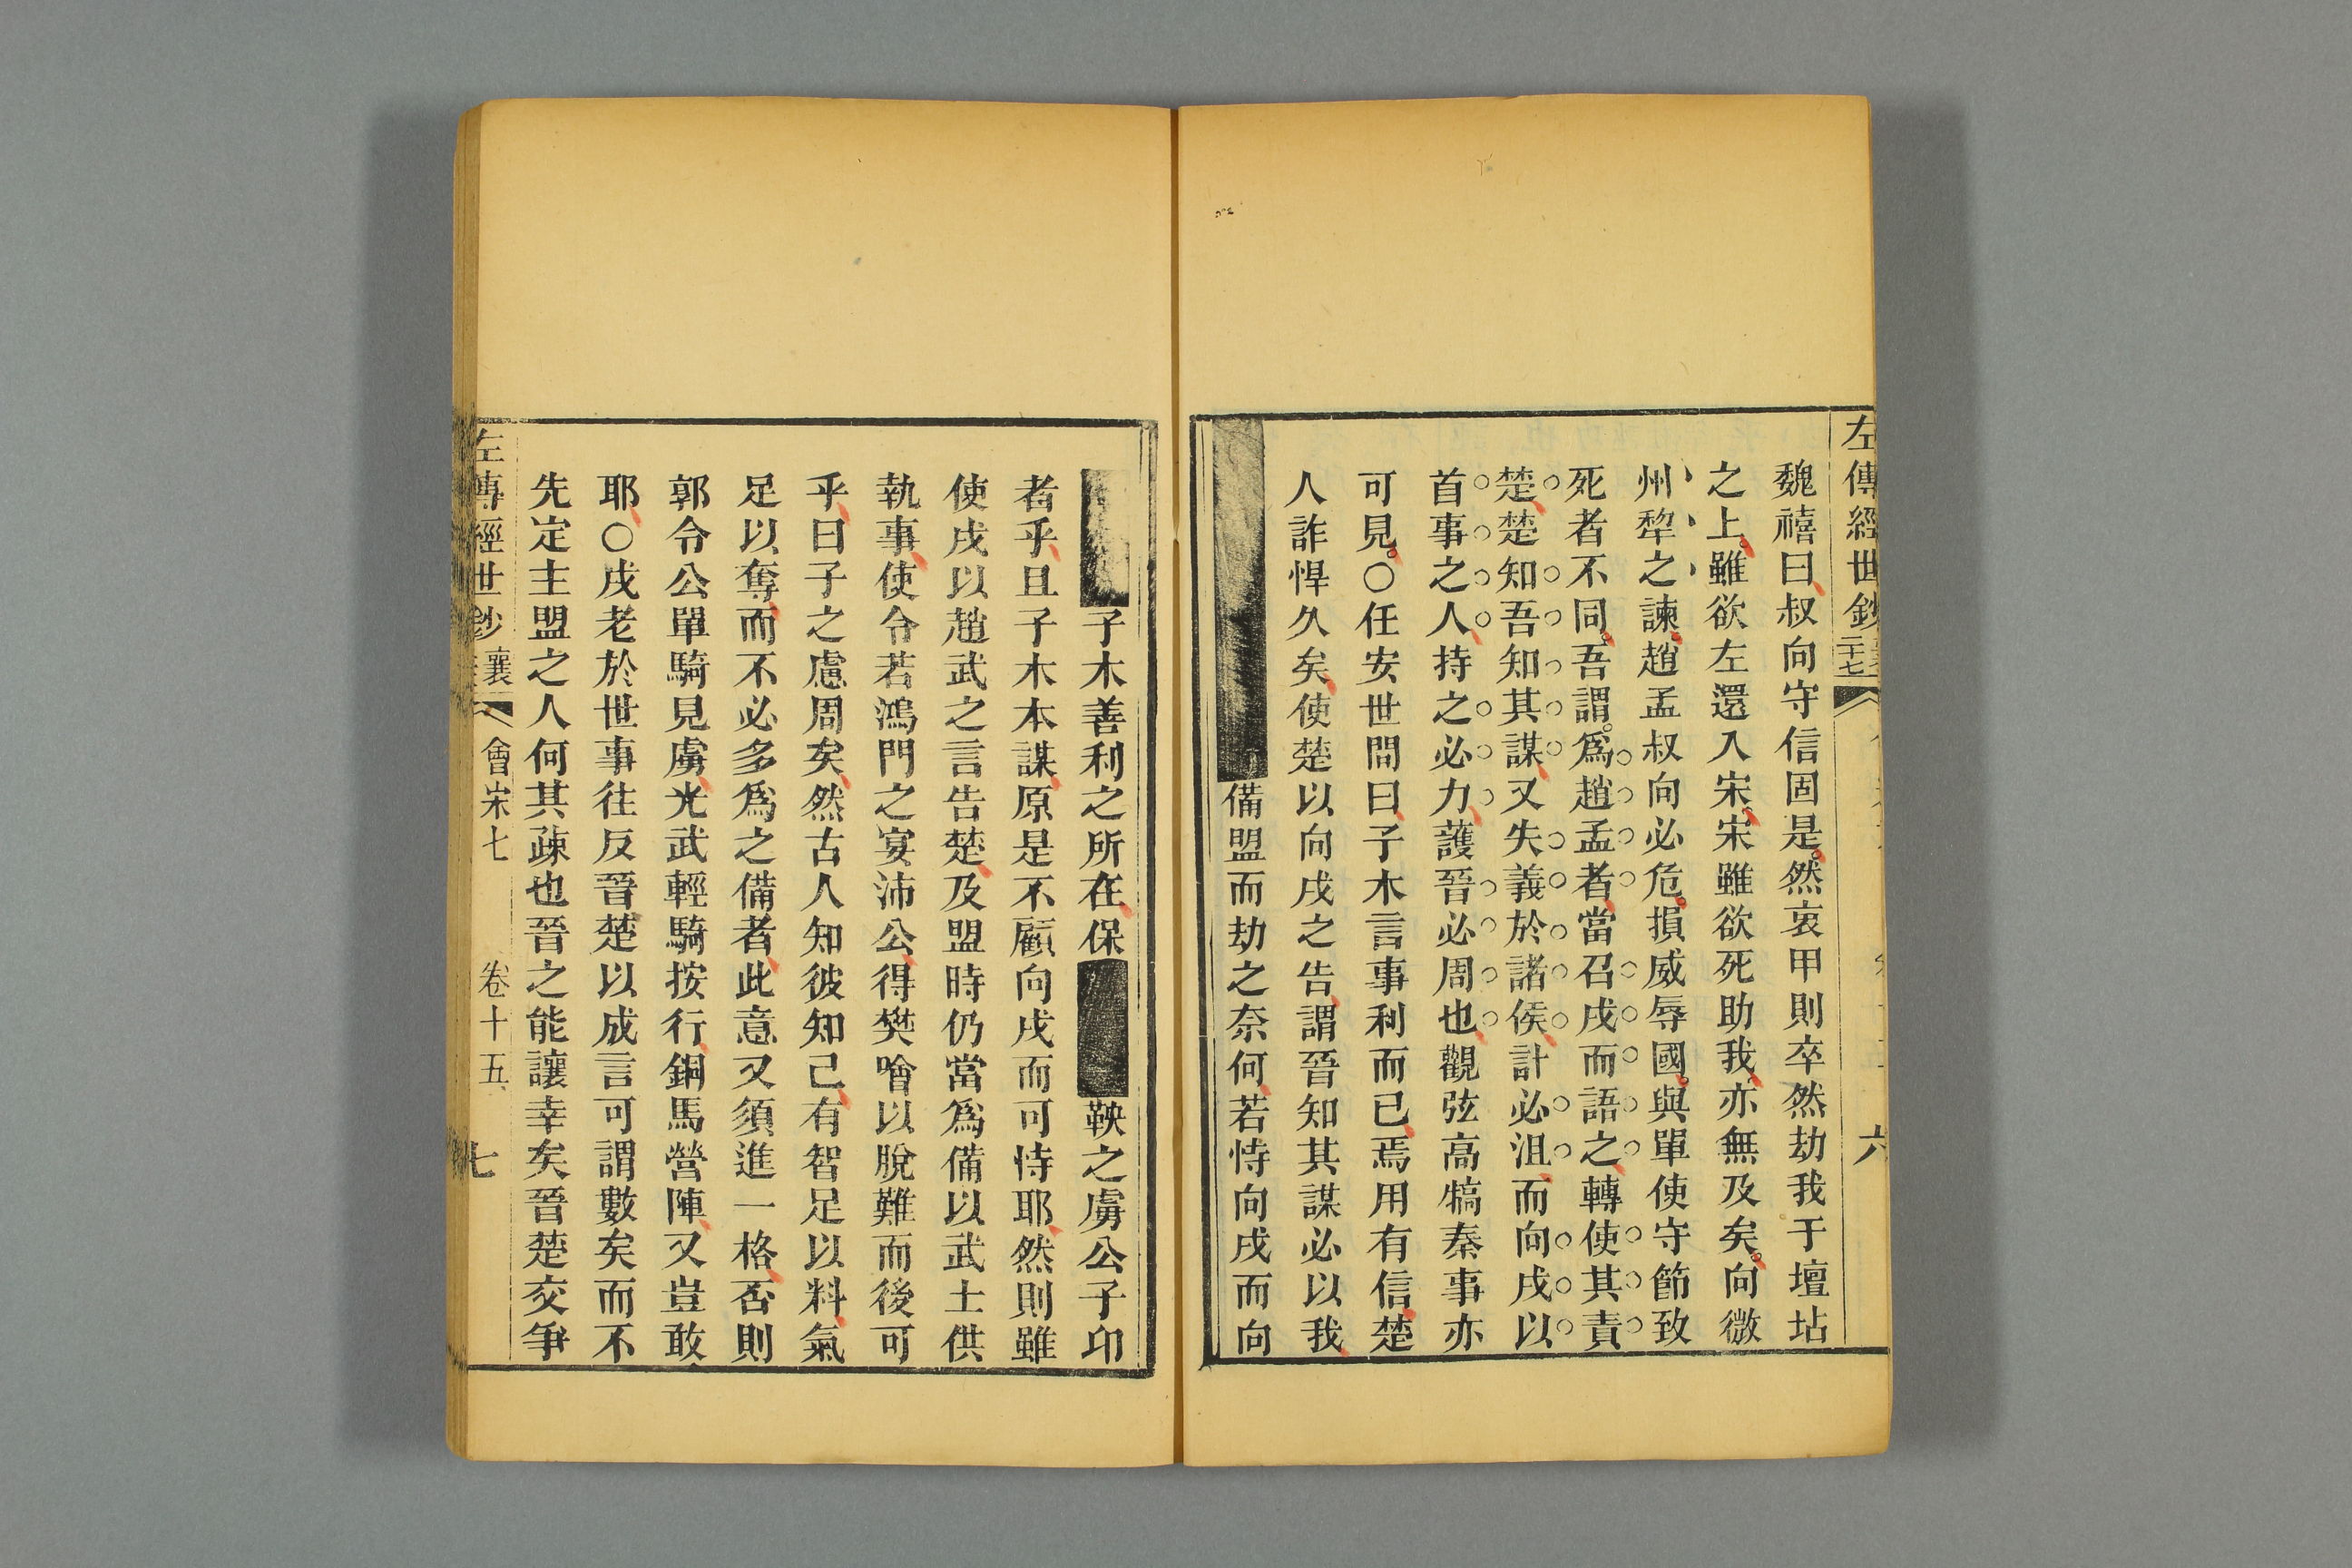 左傳經世鈔
二十七
六
魏禧曰叔向守信固是然衷甲則卒然劫我于壇坫
之上雖欲左還入宋宋雖欲死助我亦無及矣向微
州犂之諫趙孟叔向必危損威辱國與單使守節致
死者不同吾謂爲趙孟者當召戌而語之轉使其責
楚楚知吾知其謀又失義於諸侯計必沮而向戌以
首事之人持之必力護晉必周也觀弦高犒秦事亦
可見○任安世問曰子木言事利而已焉用有信楚
人詐悍久矣使楚以向戌之告謂晉知其謀必以我
備盟而劫之奈何若恃向戌而向
子木善利之所在保鞅之虜公子卬
者乎且子木本謀原是不顧向戌而可恃耶然則雖
使戌以趙武之言告楚及盟時仍當爲備以武士供
執事使令若鴻門之宴沛公得樊噲以脫難而後可
乎曰子之慮周矣然古人知彼知己有智足以料氣
足以奪而不必多爲之備者此意又須進一格否則
郭令公單騎見虜光武輕騎按行銅馬營陣又豈敢
耶○戌老於世事往反晉楚以成言可謂數矣而不
先定主盟之人何其疎也晉之能讓幸矣晉楚交爭
左傳經世鈔
襄
會宋七
卷十五
七